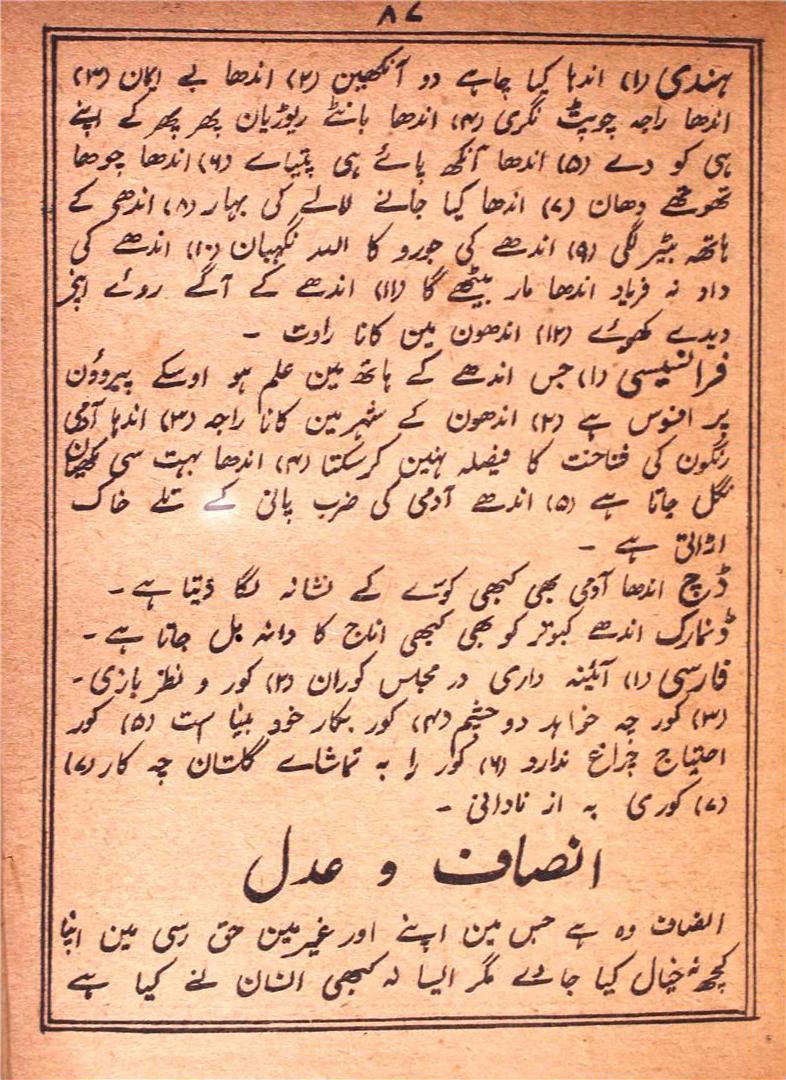 ۸۷
ہندی (۱) اندہا کیا چاہے دو آنکھین (۲) اندھا بے ایمان (۳)
اندھا راجہ چوپٹ نگری (۴) اندھا بانٹے ریوڑیان پھر پھر کے اپنے
ہی کو دے (۵) اندھا آنکھ پائے ہی پتیاے (۶) اندھا چوھا
تھوتھے دھان (۷) اندھا کیا جانے لالے کی بہار (۸) اندھی کے
ہاتھ بٹیر لگی (۹) اندھے کی جورو کا اللہ نگہبان (۱۰) اندھے کی
داد نہ فریاد اندھا مار بیٹھے گا (۱۱) اندھے کے آگے روئے اپنی
دیدے کھوئے (۱۲) اندھون مین کانا راوت ۔
فرانسیسی (۱) جس اندھے کے ہاتھ مین علم ہو اوسکے پیروؤن
پر افسوس ہے (۲) اندھون کے شہر مین کانا راجہ (۳) اندہا آدمی
رنگون کی شناخت کا فیصلہ نہین کرسکتا (۴) اندھا بہت سی مکھیان
نگل جاتا ہے (۵) اندھے آدمی کی ضرب پانی کے تلے خاک
اڑاتی ہے ۔
ڈچ اندھا آدمی بھی کبھی کوّے کے نشانہ لگا دیتا ہے ۔
ڈنمارک اندھے کبوتر کو بھی کبھی اناج کا دانہ مل جاتا ہے ۔
فارسی (۱) آئینہ داری در مجلس کوران (۲) کور و نظر بازی ۔
(۳) کور چہ خواہد دو چشم (۴) کور بکار خود بینا است (۵) کور
احتیاج چراغ ندارد (۶) کور را بہ تماشاے گلستان چہ کار (۷)
(۷) کوری بہ از نادانی ۔
انصاف و عدل
انصاف وہ ہے جس مین اپنے اور غیر مین حق رسی مین اپنا
کچھ نہ خیال کیا جاوے مگر ایسا نہ کبھی انسان نے کیا ہے